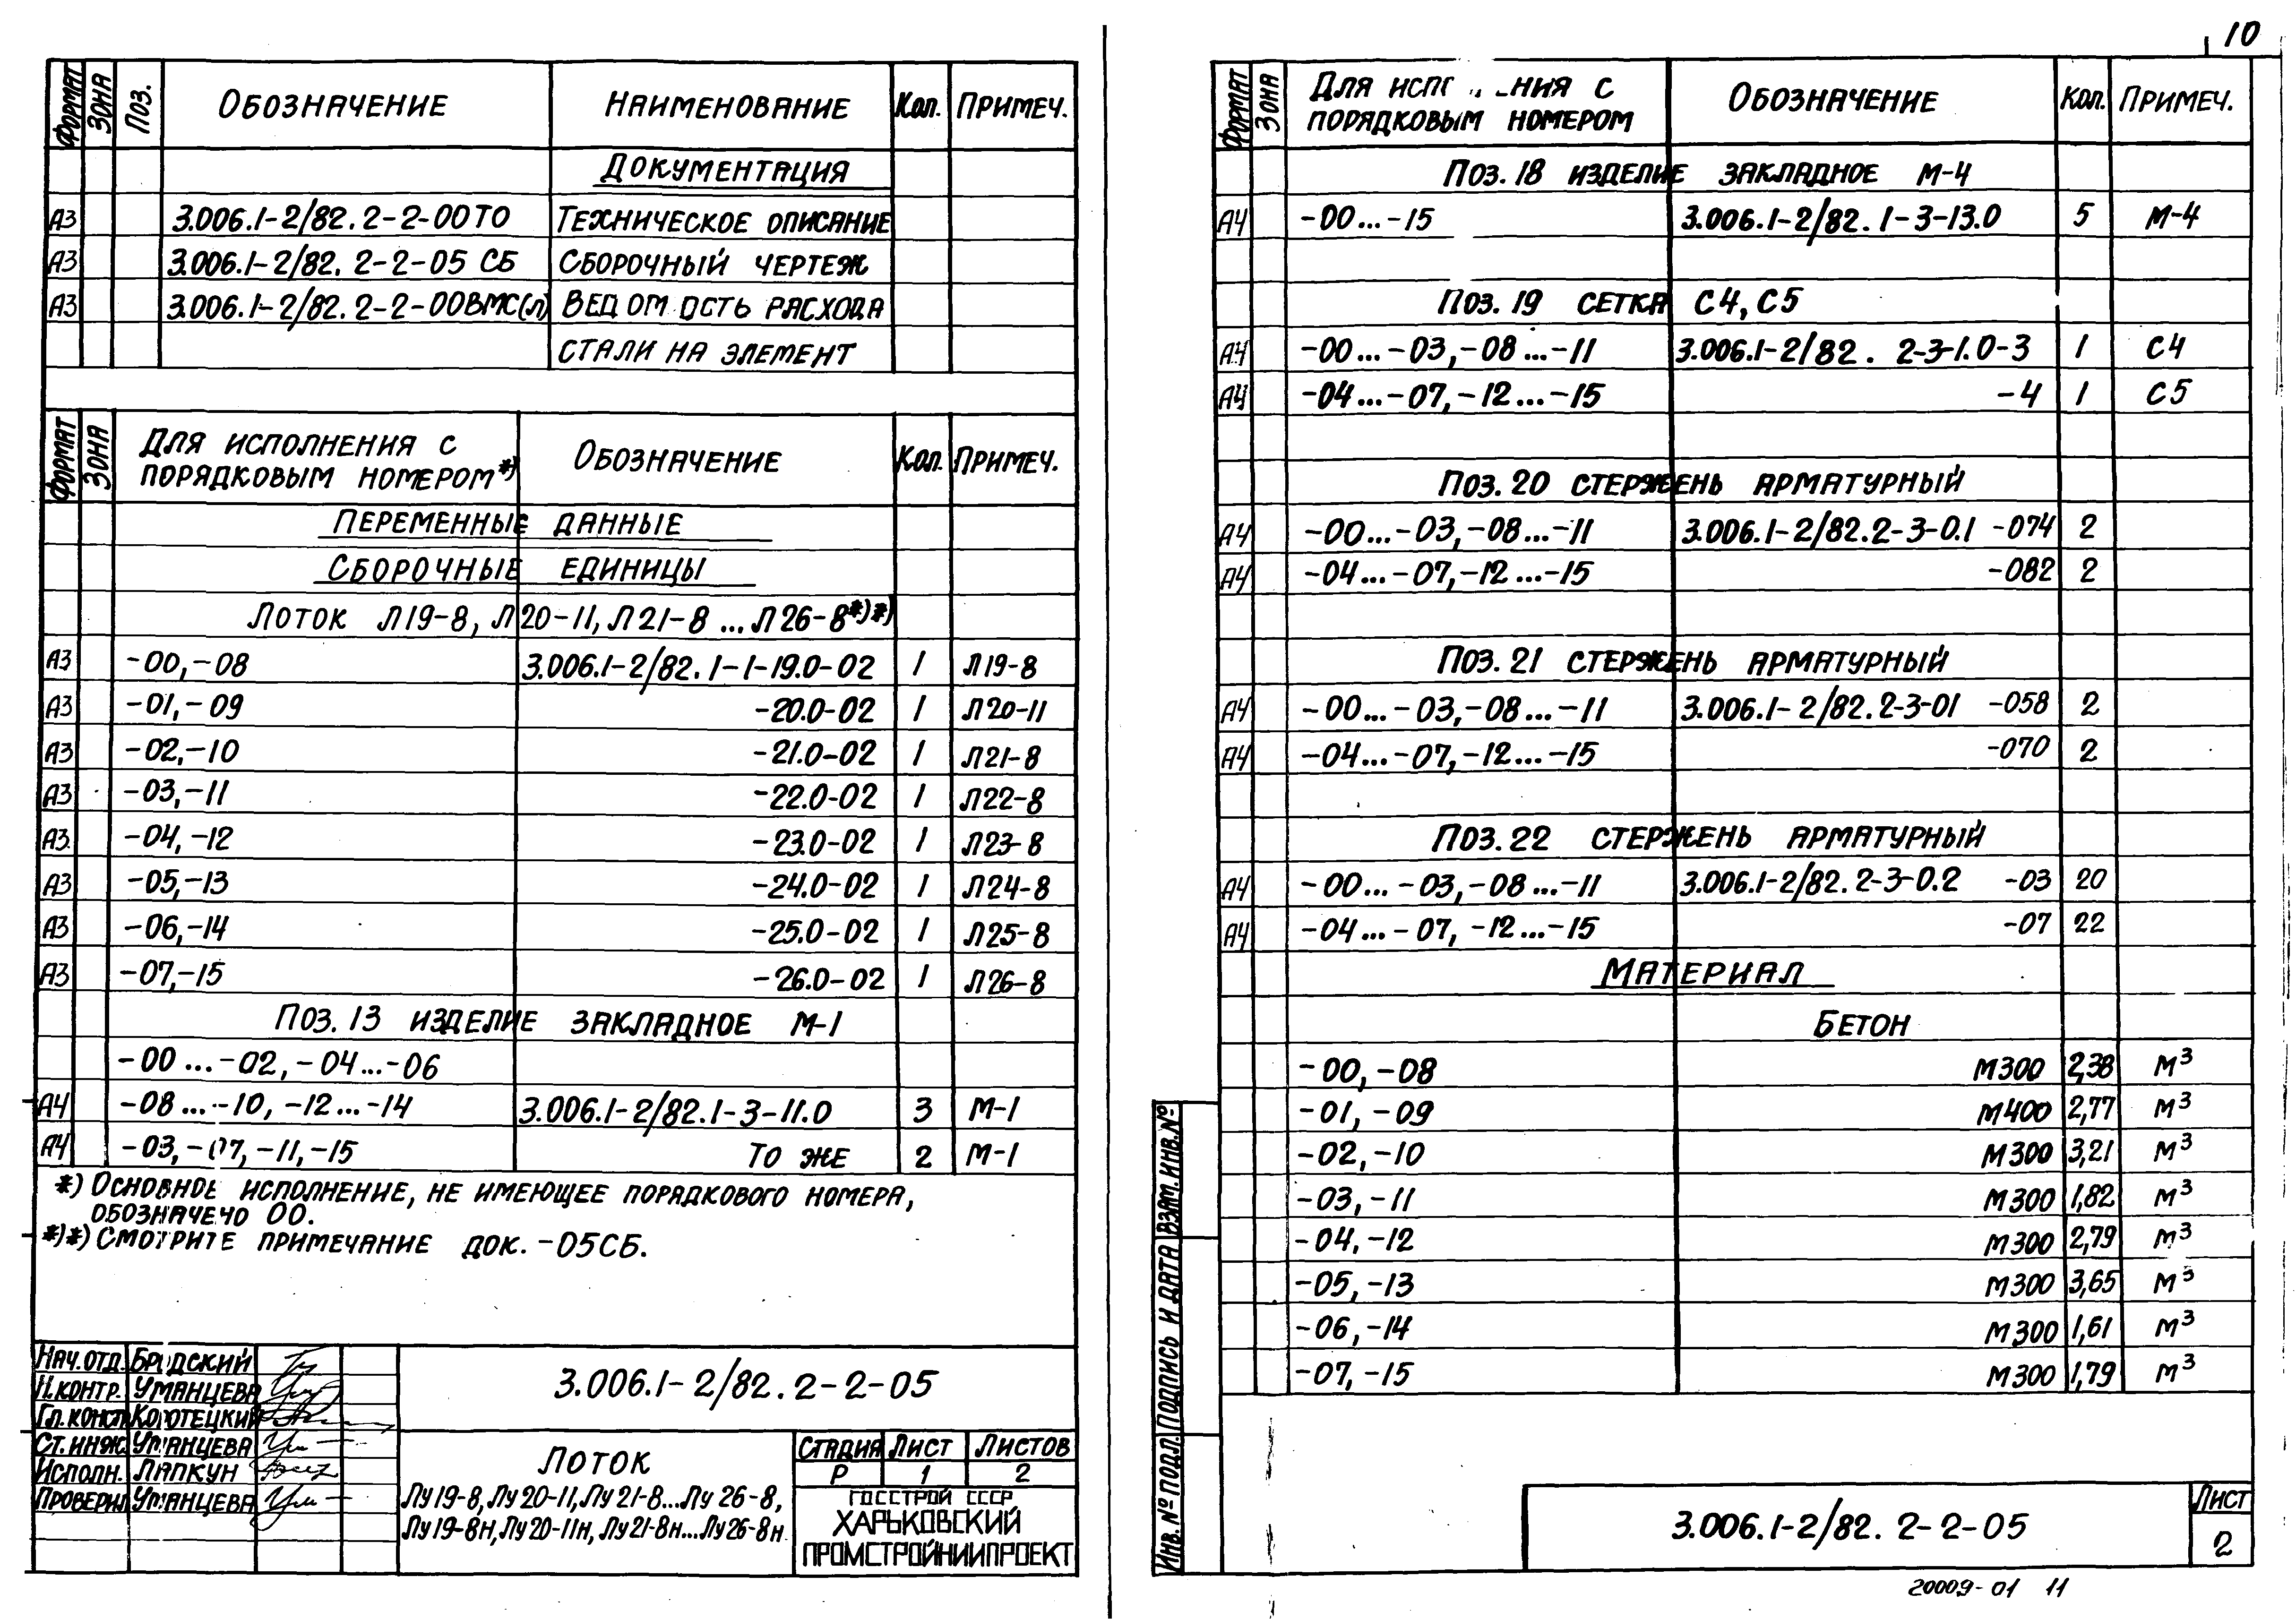 10
ФОРМАТ ЗОНА ПОЗ. ОБОЗНАЧЕНИЕ НАИМЕНОВАНИЕ КОЛ. ПРИМЕЧ.
ДОКУМЕНТАЦИЯ
А3 3.006.1-2/82. 2-2-00 ТО ТЕХНИЧЕСКОЕ ОПИСАНИЕ
А3 3.006.1-2/82. 2-2-05 СБ СБОРОЧНЫЙ ЧЕРТЕЖ
А3 3.006.1-2/82. 2-2-00ВМС(Л) ВЕДОМ ОСТЬ РАСХОДА
СТАЛИ НА ЭЛЕМЕНТ
ФОРМАТ ЗОНА ДЛЯ ИСПОЛНЕНИЯ С ПОРЯДКОВЫМ НОМЕРОМ*) ОБОЗНАЧЕНИЕ КОЛ. ПРИМЕЧ.
ПЕРЕМЕННЫЕ ДАННЫЕ
СБОРОЧНЫЕ ЕДИНИЦЫ
ЛОТОК Л19-8, Л20-11, Л21-8 ... Л26-8*)*)
А3 -00, -08 3.006.1-2/82. 1-1-19.0-02 1 Л19-8
А3 -01, -09 -20.0-02 1 Л20-11
А3 -02, -10 -21.0-02 1 Л21-8
А3 -03, -11 -22.0-02 1 Л22-8
А3 -04, -12 -23.0-02 1 Л23-8
А3 -05, -13 -24.0-02 1 Л24-8
А3 -06, -14 -25.0-02 1 Л25-8
А3 -07, -15 -26.0-02 1 Л26-8
ПОЗ. 13 ИЗДЕЛИЕ ЗАКЛАДНОЕ М-1
-00 ... -02, -04 ... -06
А4 -08 ... -10, -12 ... -14 3.006.1-2/82. 1-3-11.0 3 М-1
А4 -03, -07, -11, -15 ТО ЖЕ 2 М-1
*) ОСНОВНОЕ ИСПОЛНЕНИЕ, НЕ ИМЕЮЩЕЕ ПОРЯДКОВОГО НОМЕРА,
ОБОЗНАЧЕНО 00.
*)*) СМОТРИТЕ ПРИМЕЧАНИЕ ДОК. -05СБ.
НАЧ.ОТД. БРОДСКИЙ
Н.КОНТР. УМАНЦЕВА
ГЛ.КОНСТ. КОРОТЕЦКИЙ
СТ.ИНЖ. УМАНЦЕВА
ИСПОЛН. ЛАПКУН
ПРОВЕРИЛ УМАНЦЕВА
3.006.1-2/82. 2-2-05
ЛОТОК
ЛУ19-8, ЛУ20-11, ЛУ21-8...ЛУ26-8,
ЛУ19-8Н, ЛУ20-11Н, ЛУ21-8Н...ЛУ26-8Н
СТАДИЯ ЛИСТ ЛИСТОВ
Р 1 2
ГОССТРОЙ СССР
ХАРЬКОВСКИЙ
ПРОМСТРОЙНИИПРОЕКТ
ФОРМАТ ЗОНА ДЛЯ ИСП НИЯ С ПОРЯДКОВЫМ НОМЕРОМ ОБОЗНАЧЕНИЕ КОЛ. ПРИМЕЧ.
ПОЗ. 18 ИЗДЕЛИЕ ЗАКЛАДНОЕ М-4
А4 -00 ... -15 3.006.1-2/82. 1-3-13.0 5 М-4
ПОЗ. 19 СЕТКА С4, С5
А4 -00 ... -03, -08 ... -11 3.006.1-2/82. 2-3-1.0-3 1 С4
А4 -04 ... -07, -12 ... -15 -4 1 С5
ПОЗ. 20 СТЕРЖЕНЬ АРМАТУРНЫЙ
А4 -00 ... -03, -08 ... -11 3.006.1-2/82. 2-3-0.1 -074 2
А4 -04 ... -07, -12 ... -15 -082 2
ПОЗ. 21 СТЕРЖЕНЬ АРМАТУРНЫЙ
А4 -00 ... -03, -08 ... -11 3.006.1-2/82. 2-3-01 -058 2
А4 -04 ... -07, -12 ... -15 -070 2
ПОЗ. 22 СТЕРЖЕНЬ АРМАТУРНЫЙ
А4 -00 ... -03, -08 ... -11 3.006.1-2/82. 2-3-0.2 -03 20
А4 -04 ... -07, -12 ... -15 -07 22
МАТЕРИАЛ
БЕТОН
-00, -08 М300 2,38 М³
-01, -09 М400 2,77 М³
-02, -10 М300 3,21 М³
-03, -11 М300 1,82 М³
-04, -12 М300 2,79 М³
-05, -13 М300 3,65 М³
-06, -14 М300 1,61 М³
-07, -15 М300 1,79 М³
ИНВ. № ПОДЛ. ПОДПИСЬ И ДАТА ВЗАМ. ИНВ. №
3.006.1-2/82. 2-2-05
ЛИСТ
2
20009-01 11